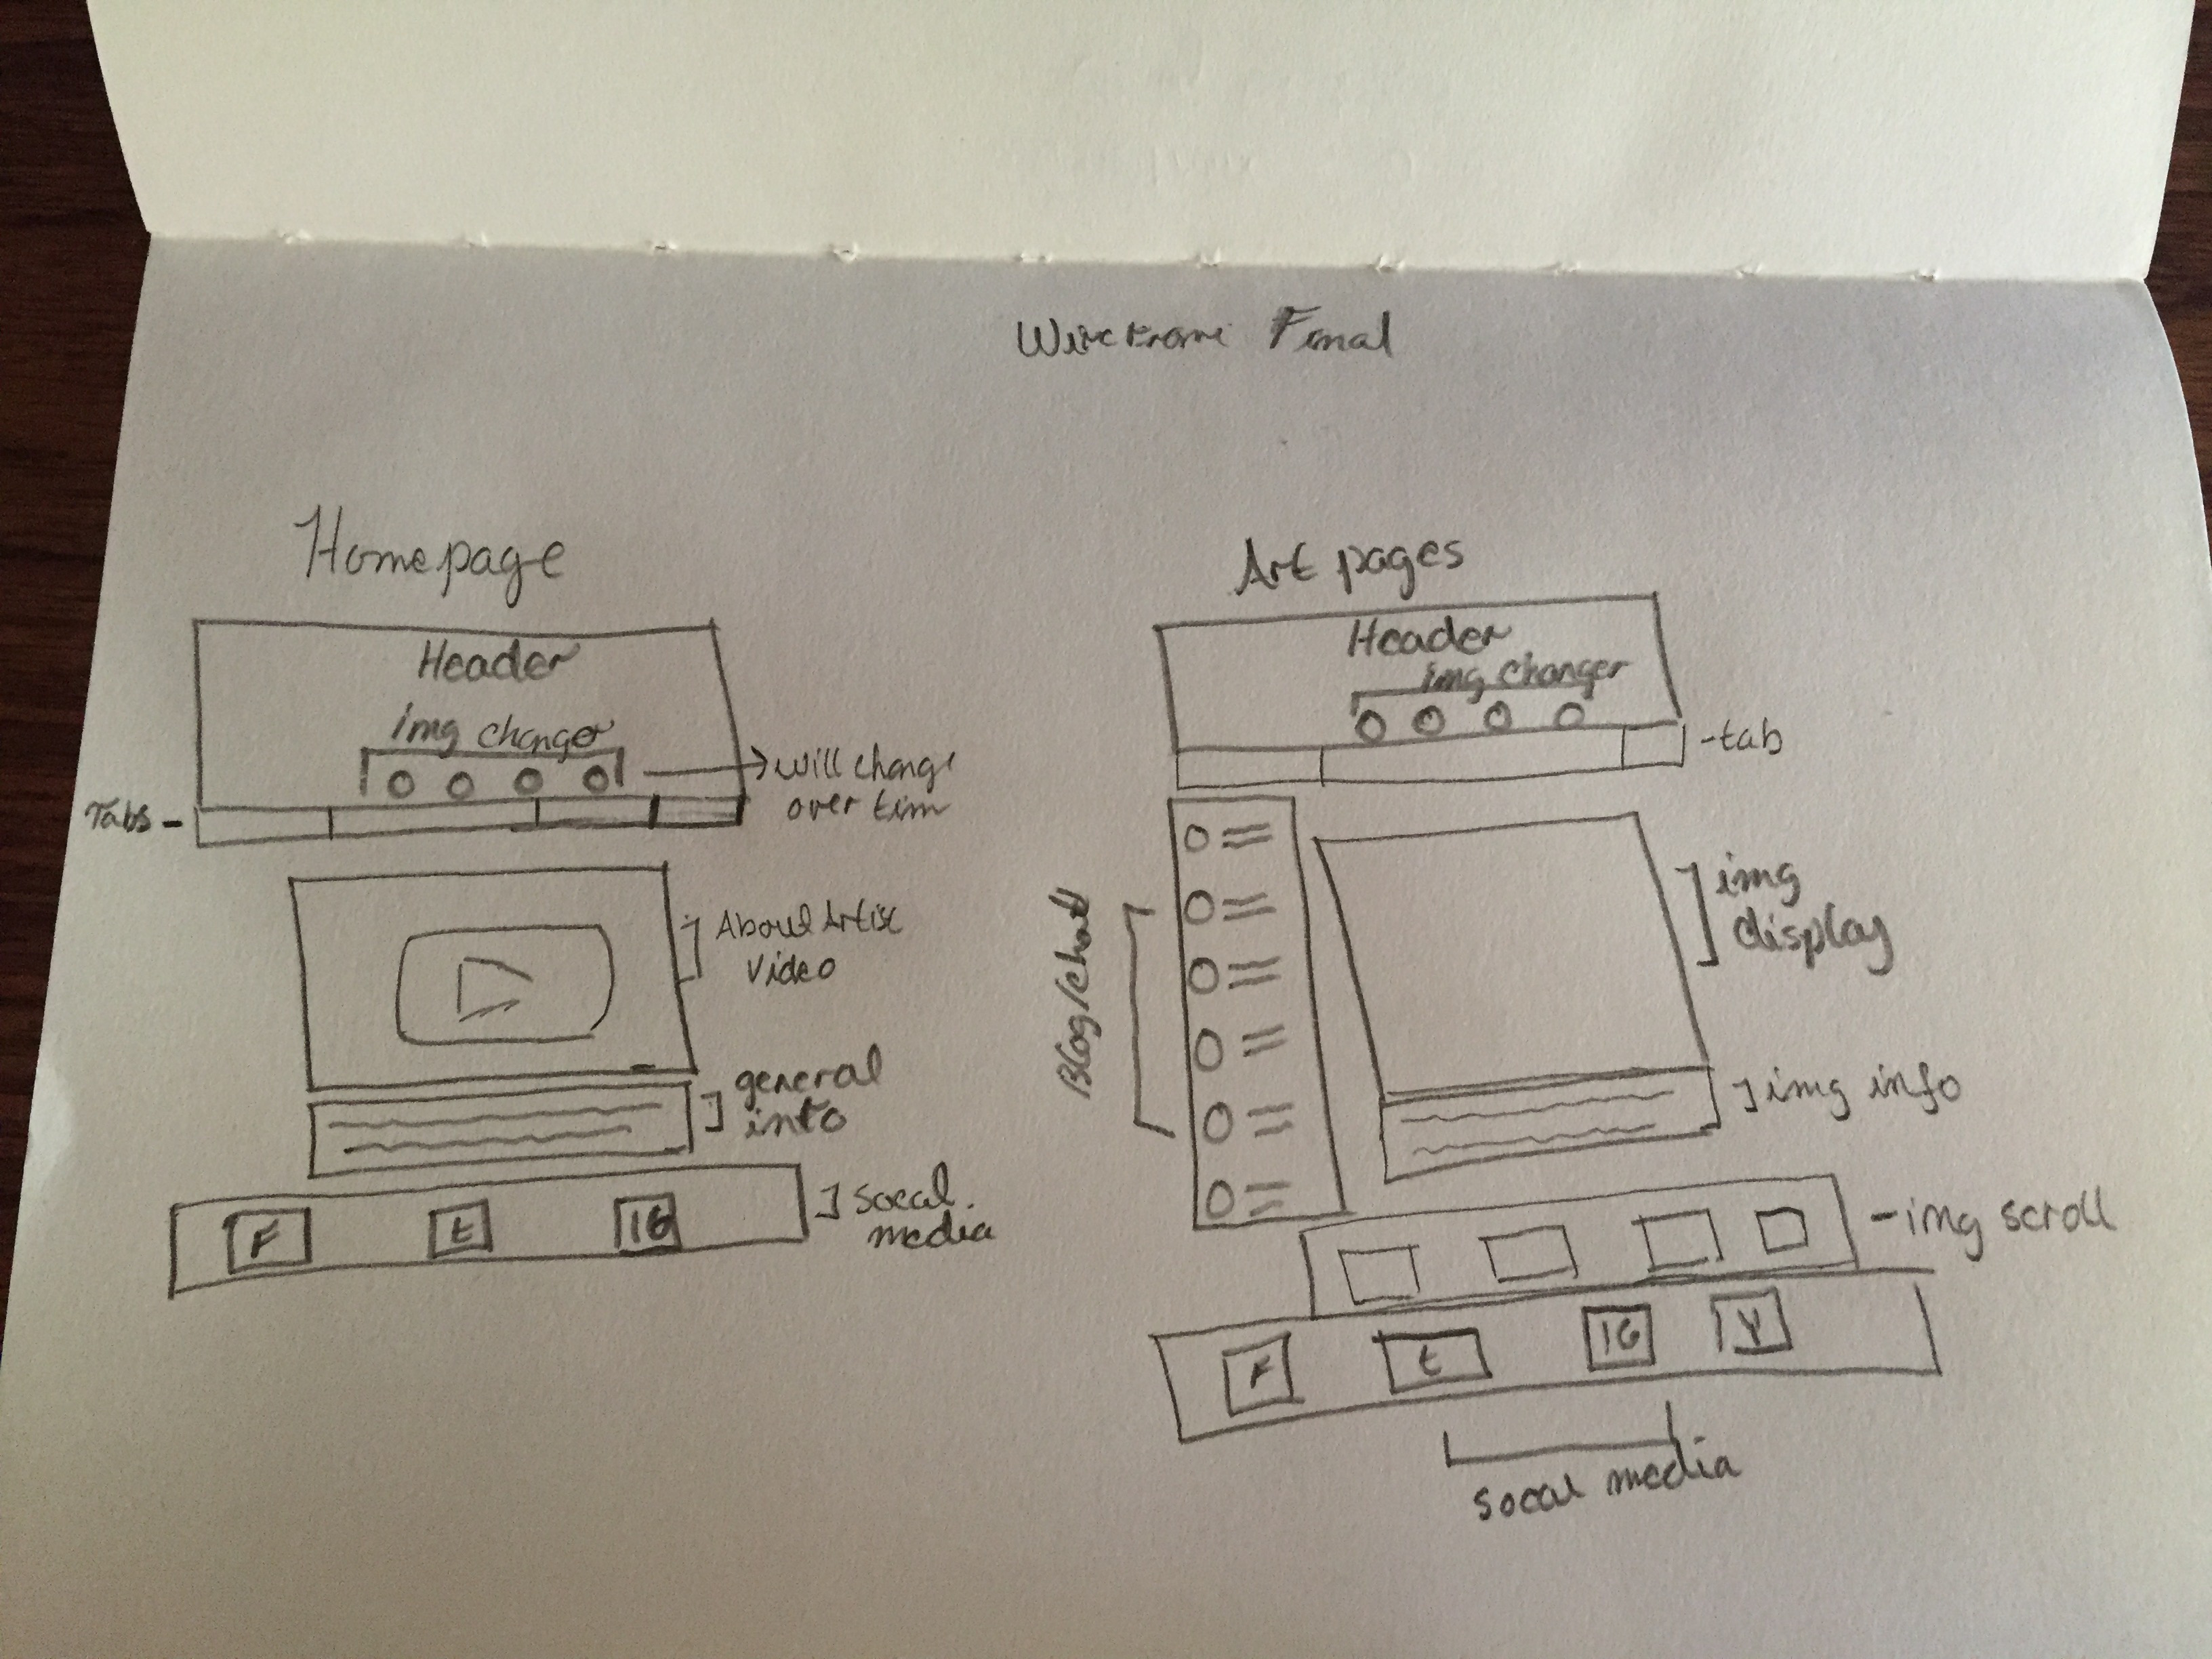 Wireframe Final
Homepage
Header
img changer
will change
over tim
Tabs -
About Artist
Video
general
info
F
t
IG
Socal
media
Art pages
Header
img changer
- tab
Blog/chat
img
display
img info
- img scroll
F
t
IG
Y
Socal media